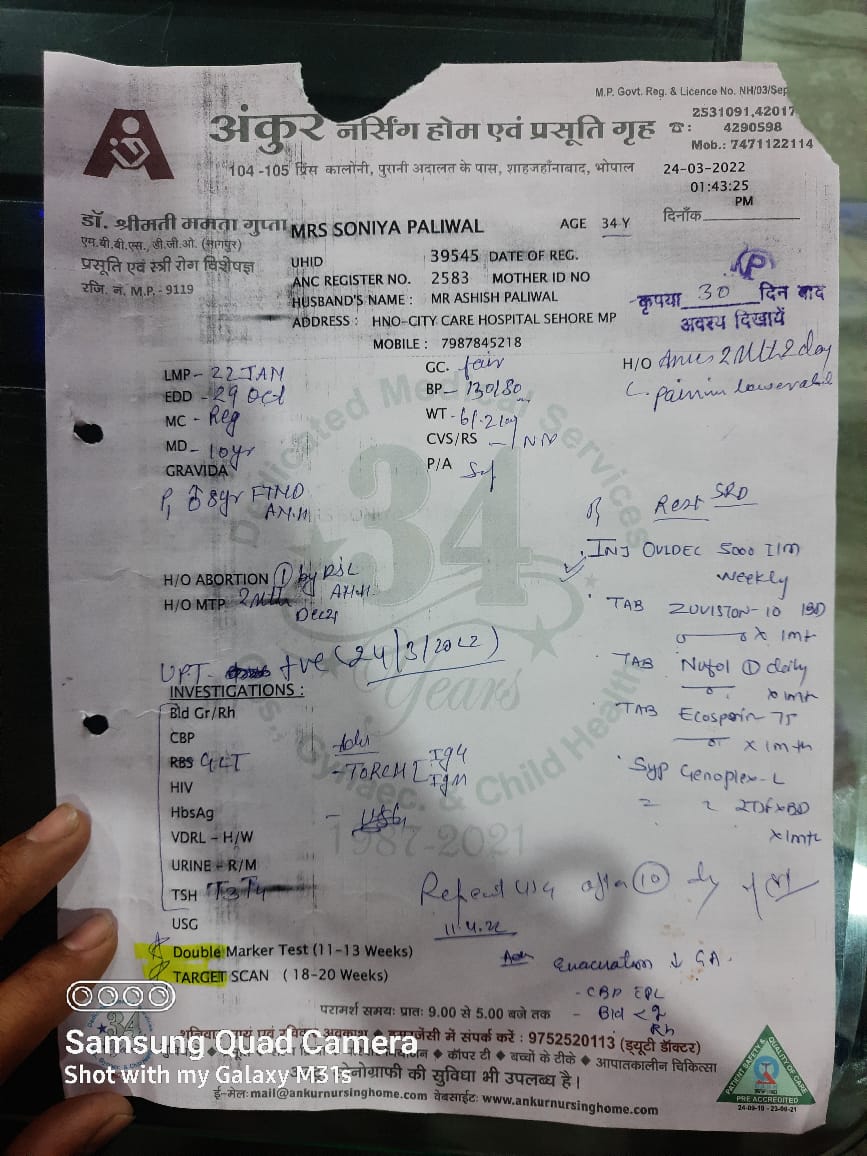 M.P. Govt. Reg. & Licence No. NH/03/Sep
अंकुर नर्सिंग होम एवं प्रसूति गृह
☎: 2531091,42017
4290598
Mob.: 7471122114
104-105 प्रिंस कालोनी, पुरानी अदालत के पास, शाहजहाँनाबाद, भोपाल
24-03-2022
01:43:25
PM
दिनाँक
डॉ. श्रीमती ममता गुप्ता
एम.बी.बी.एस., डी.जी.ओ. (सागपुर)
प्रसूति एवं स्त्री रोग विशेषज्ञ
रजि. नं. M.P. - 9119
MRS SONIYA PALIWAL AGE 34 Y
UHID : 39545 DATE OF REG.
ANC REGISTER NO. : 2583 MOTHER ID NO
HUSBAND'S NAME : MR ASHISH PALIWAL
ADDRESS : HNO-CITY CARE HOSPITAL SEHORE MP
MOBILE : 7987845218
कृपया 30 दिन बाद
अवश्य दिखायें
LMP - 22 JAN
EDD - 29 Oct
MC - Reg
MD - 10yr
GRAVIDA
P1 8yr FTND
GC. fair
BP - 130/80
WT -
CVS/RS - NN
P/A
H/O 2 Mth 2 day
H/O ABORTION ① by
H/O MTP 2 Mth
Dec21
UPT +ve (24/3/2022)
Rest
INJ OVLDEC 5000 I/M
Weekly
TAB ZUVISTON-10 BD
x 1mt
TAB Nufol ① daily
x 1mt
TAB Ecosprin 75
x 1mth
Syp Genoplex-L
x BD
x 1mt
INVESTIGATIONS :
Bld Gr/Rh
CBP
RBS GCT
HIV
HbsAg
VDRL - H/W
URINE - R/M
TSH T3T4
USG
Adv
- TORCH IgG
IgM
- USG
Repeat USG after ⑩ dy
11.4.22
Double Marker Test (11-13 Weeks)
TARGET SCAN ( 18-20 Weeks)
Adv Evacuation ↓ GA.
- CBP
- Bld < g
Rh
34
Years
Dedicated Medical Services
Gynaec. & Child Health
1987-2021
परामर्श समय: प्रातः 9.00 से 5.00 बजे तक
इमरजेंसी में संपर्क करें : 9752520113 (ड्यूटी डॉक्टर)
कॉपर टी ◆ बच्चों के टीके ◆ आपातकालीन चिकित्सा
की सुविधा भी उपलब्ध है।
ई-मेल: mail@ankurnursinghome.com वेबसाईट: www.ankurnursinghome.com
PATIENT SAFETY & QUALITY OF CARE
PRE ACCREDITED
Samsung Quad Camera
Shot with my Galaxy M31s